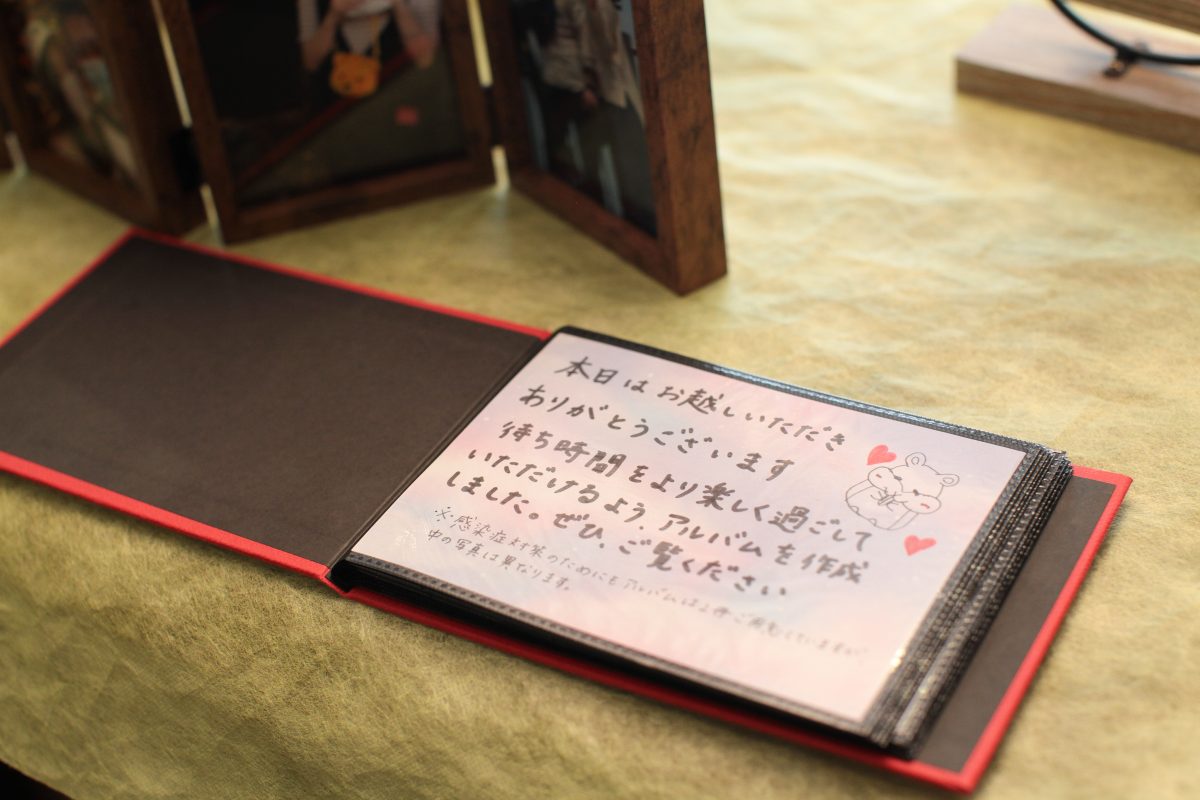 本日はお越しいただき
ありがとうございます
待ち時間をより楽しく過ごして
いただけるよう、アルバムを作成
しました。ぜひ、ご覧ください
※感染症対策のためにもアルバムは2冊ご用意していますが、
中の写真は異なります。